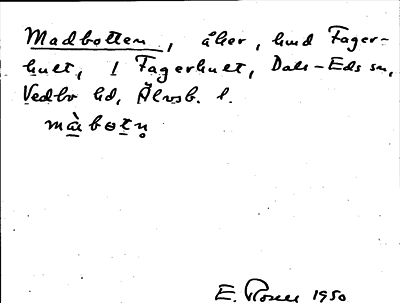 Madbotten, åker, hmd Fager-
hult, 1 Fagerhult, Dals-Eds sn,
Vedbo hd, Älvsb. l.
màbotn̥
E. Rosell 1950